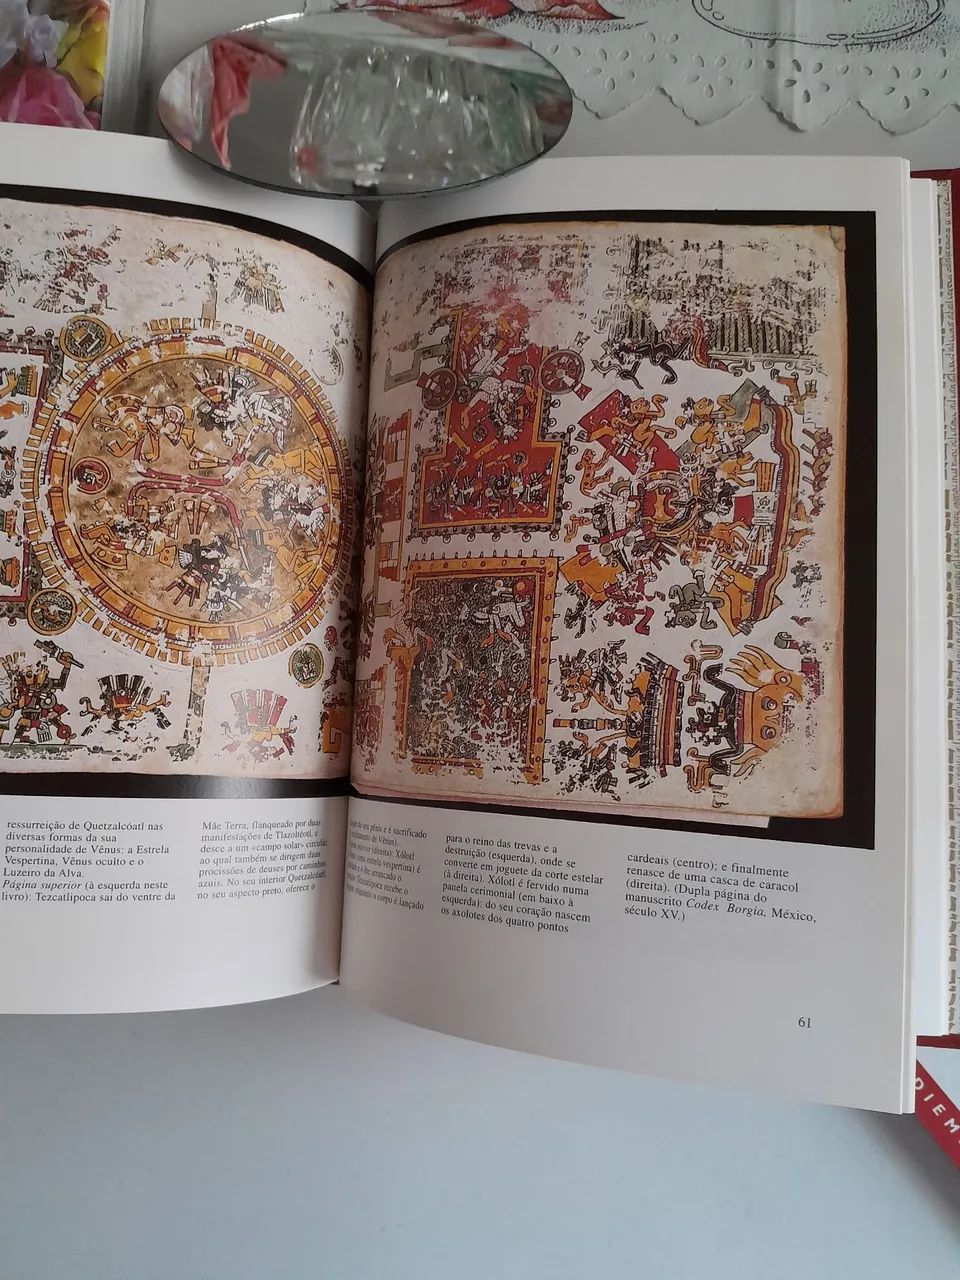 ressurreição de Quetzalcóatl nas
diversas formas da sua
personalidade de Vênus: a Estrela
Vespertina, Vênus oculto e o
Luzeiro da Alva.
Página superior (à esquerda neste
livro): Tezcatlipoca sai do ventre da
Mãe Terra, flanqueado por duas
manifestações de Tlazoltéotl, e
desce a um «campo solar» circular,
ao qual também se dirigem duas
procissões de deuses por caminhos
azuis. No seu interior Quetzalcóatl,
no seu aspecto preto, oferece o
seu pênis e é sacrificado
de Vênus).
(direita): Xólotl
estrela vespertina) é
arrancado
Tezcatlipoca recebe o
enquanto o corpo é lançado
para o reino das trevas e a
destruição (esquerda), onde se
converte em joguete da corte estelar
(à direita). Xólotl é fervido numa
panela cerimonial (em baixo à
esquerda): do seu coração nascem
os axolotes dos quatro pontos
cardeais (centro); e finalmente
renasce de uma casca de caracol
(direita). (Dupla página do
manuscrito Codex Borgia, México,
século XV.)
61
DIEM